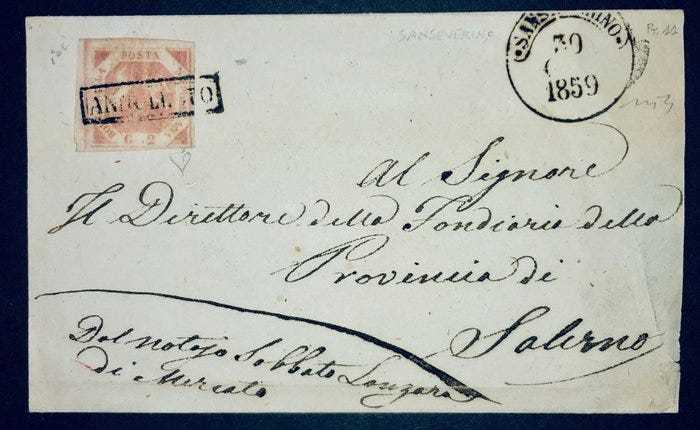 SANSEVERINO
SANSEVERINO
30
1859
POSTA
ANNULLATO
G. 2
Al Signore
Il Direttore della Fondiaria della
Provincia di
Salerno
Dal notajo Sabbato Lanzara
di Mercato